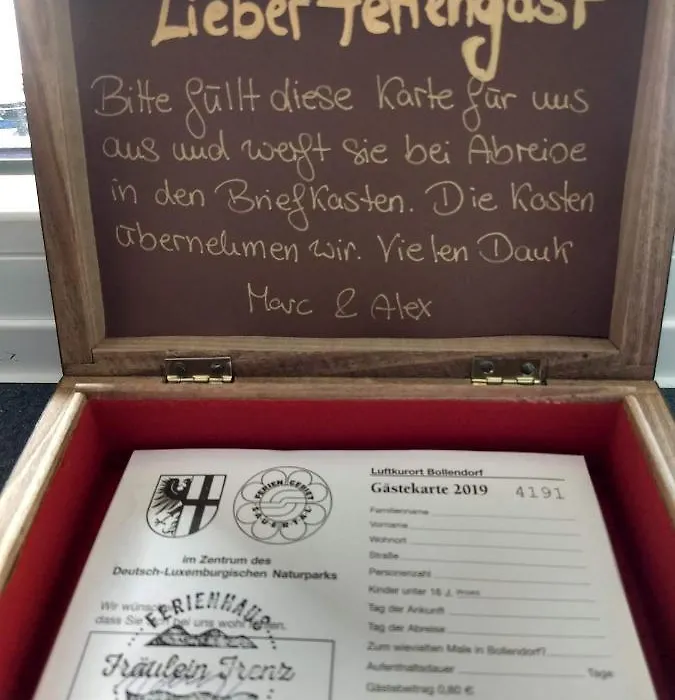 Lieber Feriengast
Bitte füllt diese Karte für uns
aus und werft sie bei Abreise
in den Briefkasten. Die Kosten
übernehmen wir. Vielen Dank
Marc & Alex
FERIENGEBIET
SAUERTAL
im Zentrum des
Deutsch-Luxemburgischen Naturparks
Wir wünschen
dass Sie sich bei uns wohl fühlen.
FERIENHAUS
Fräulein Trenz
Luftkurort Bollendorf
Gästekarte 2019 4191
Familienname
Vorname
Wohnort
Straße
Personenzahl
Kinder unter 16 J.
Tag der Ankunft
Tag der Abreise
Zum wievielten Male in Bollendorf?
Aufenthaltsdauer Tage
Gästebeitrag 0,80 €